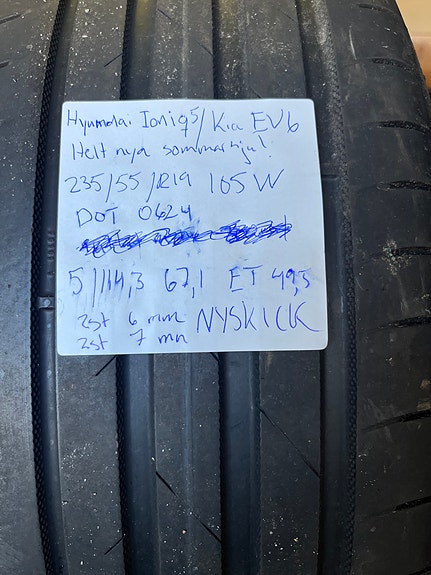 Hyundai Ioniq5/Kia EV6
Helt nya sommarhjul!
235/55/R19 105W
DOT 0624
5/114,3 67,1 ET 49,5
2st 6 mm NYSKICK
2st 7 mm